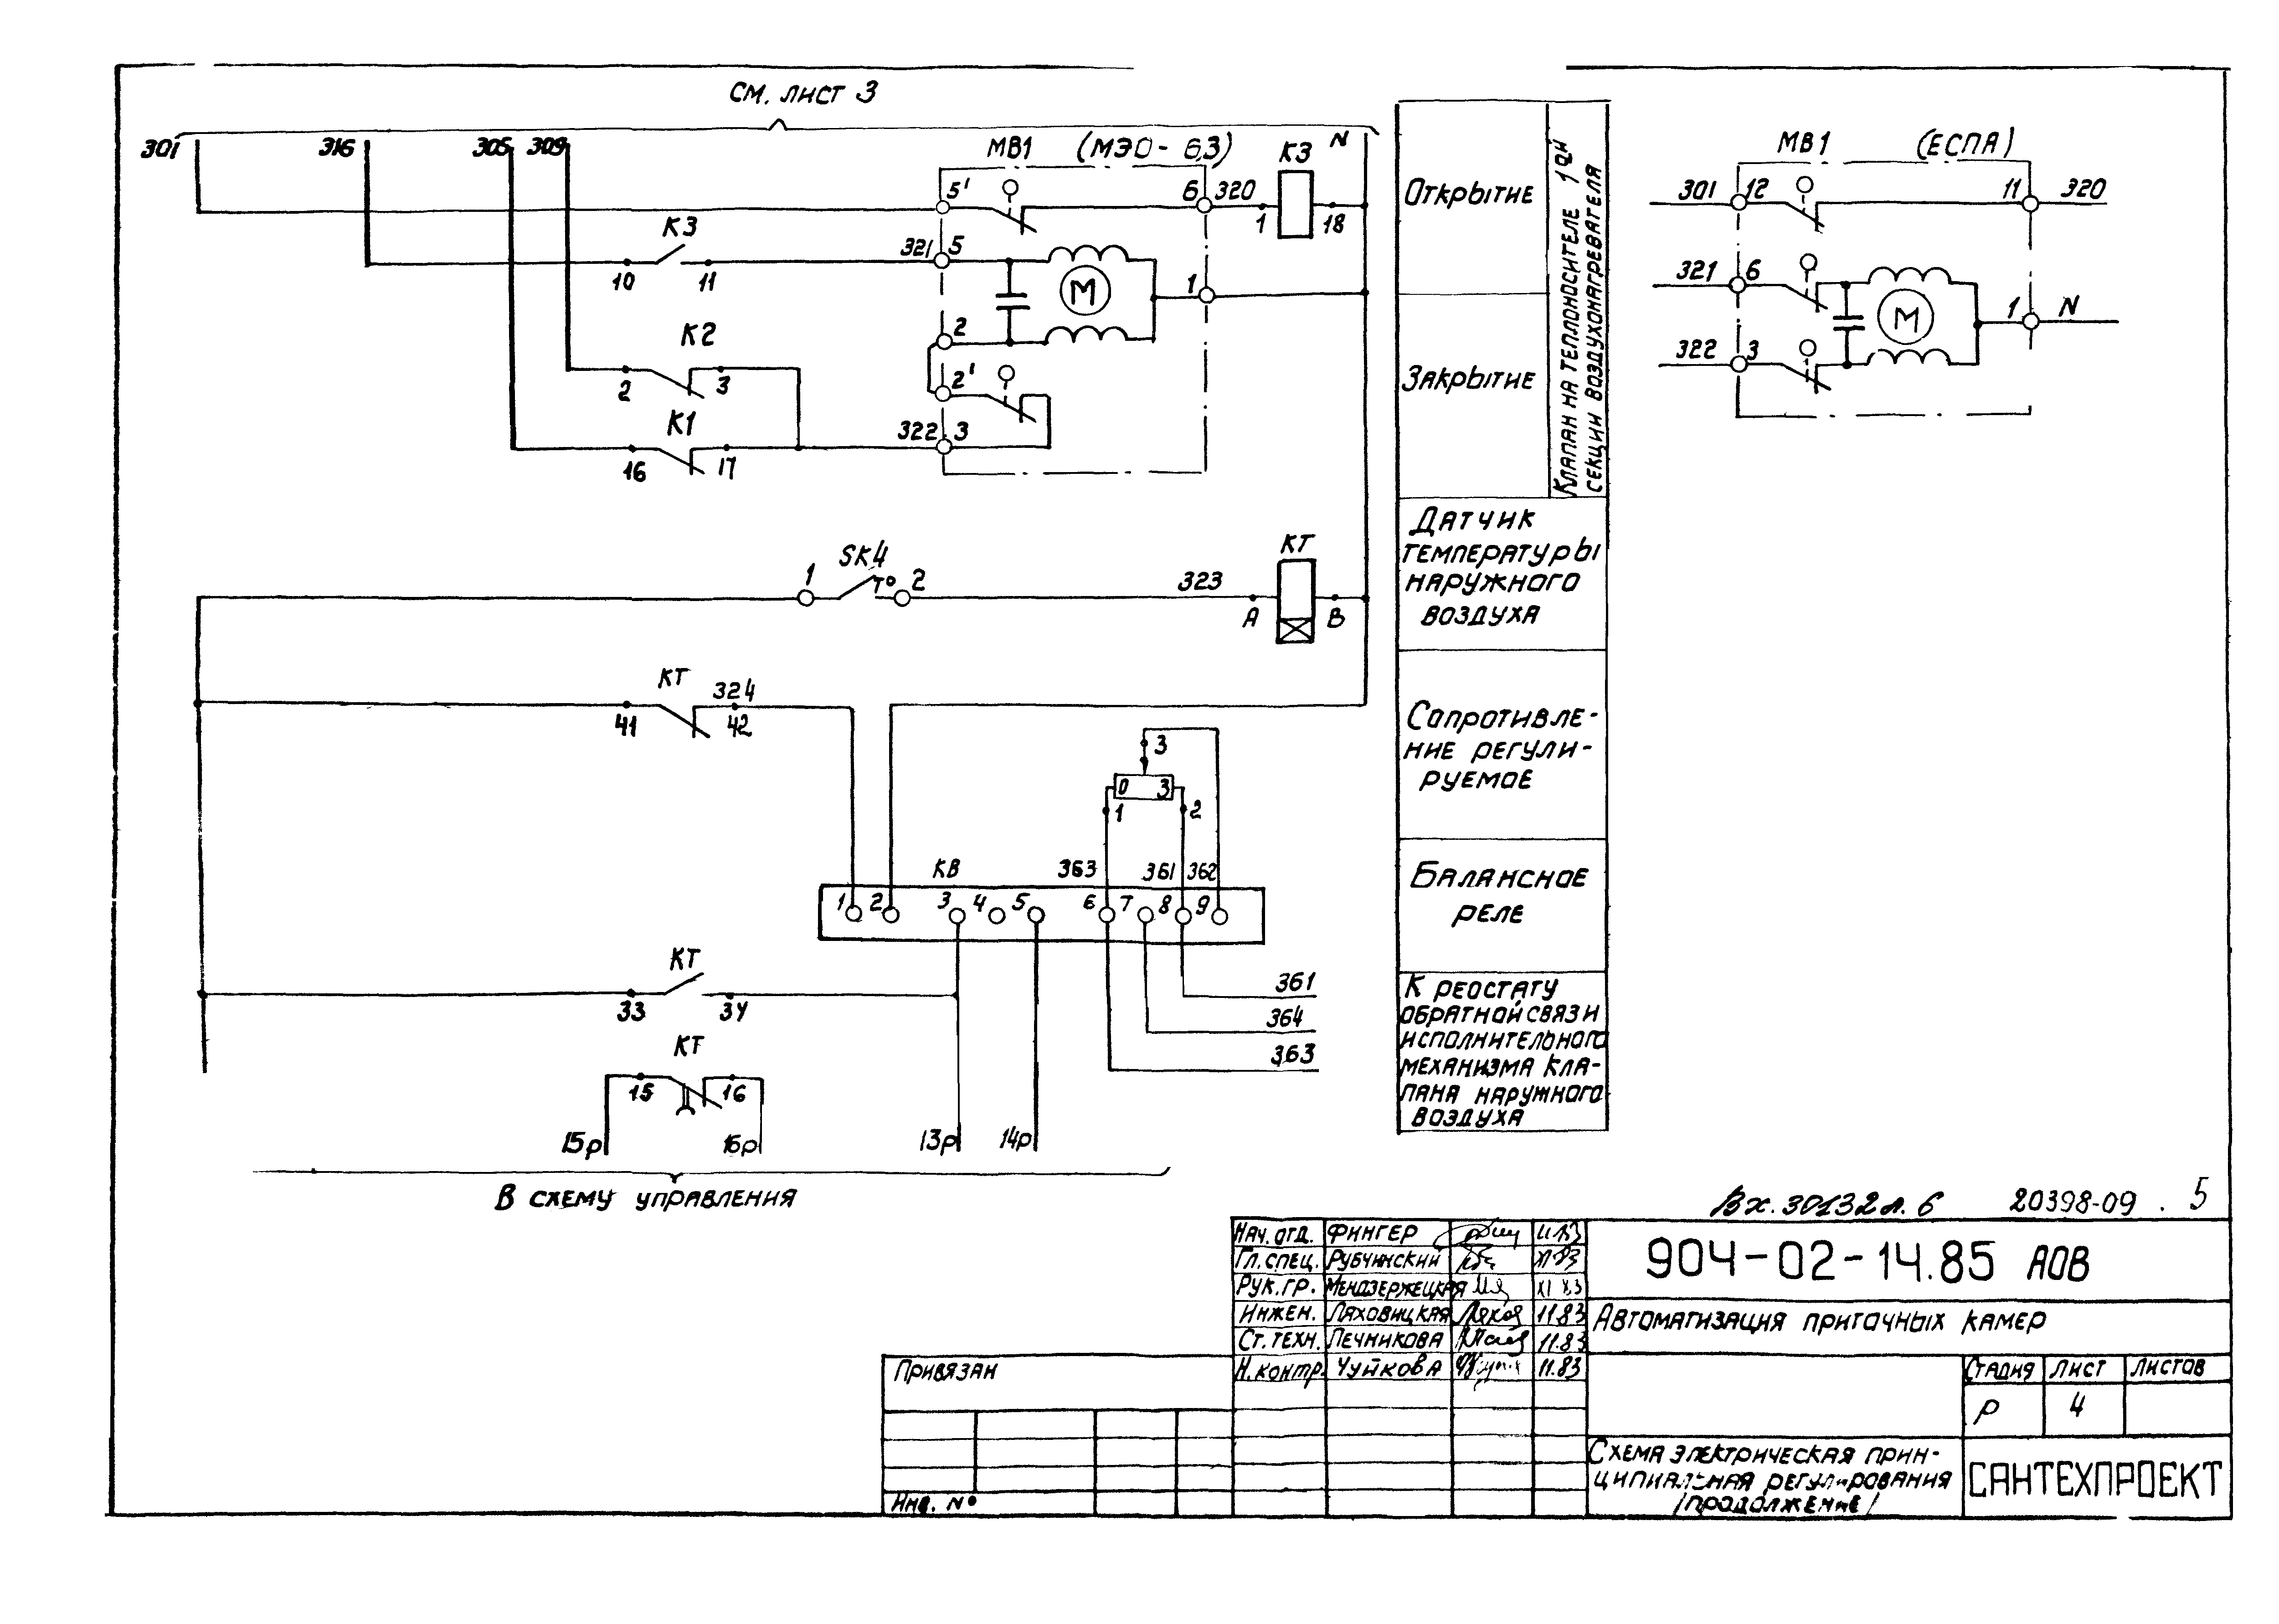 см. лист 3
301 316 305 309 МВ1 (МЭО-6,3) К3 N
5' 6 320 1 18
К3
10 11 321 5 М 1
К2
2 3 2
2'
К1
16 17 322 3
Открытие
Закрытие
Клапан на теплоносителе 1ой
секции воздухонагревателя
МВ1 (ЕСПА)
301 12 11 320
321 6 М 1 N
322 3
1 SK4 t° 2 323 КТ А В
Датчик
температуры
наружного
воздуха
КТ
41 324 42
3
0 3
1 2
Сопротивле-
ние регули-
руемое
КВ 363 361 362
1 2 3 4 5 6 7 8 9
Балансное
реле
КТ
33 34
361
364
363
К реостату
обратной связи
исполнительного
механизма кла-
пана наружного
воздуха
КТ
15 16
15р 16р 13р 14р
В схему управления
Вх. 30132 л. 6 20398-09 . 5
Нач. отд. Фингер
Гл. спец. Рубчинский
Рук. гр. Мендзержецкая
Инжен. Ляховицкая 11.83
Ст. техн. Печникова 11.83
Н. контр. Чуйкова 11.83
904-02-14.85 АОВ
Автоматизация приточных камер
Привязан
Инв. №
Стадия Лист Листов
Р 4
Схема электрическая прин-
ципиальная регулирования
/продолжение/
САНТЕХПРОЕКТ